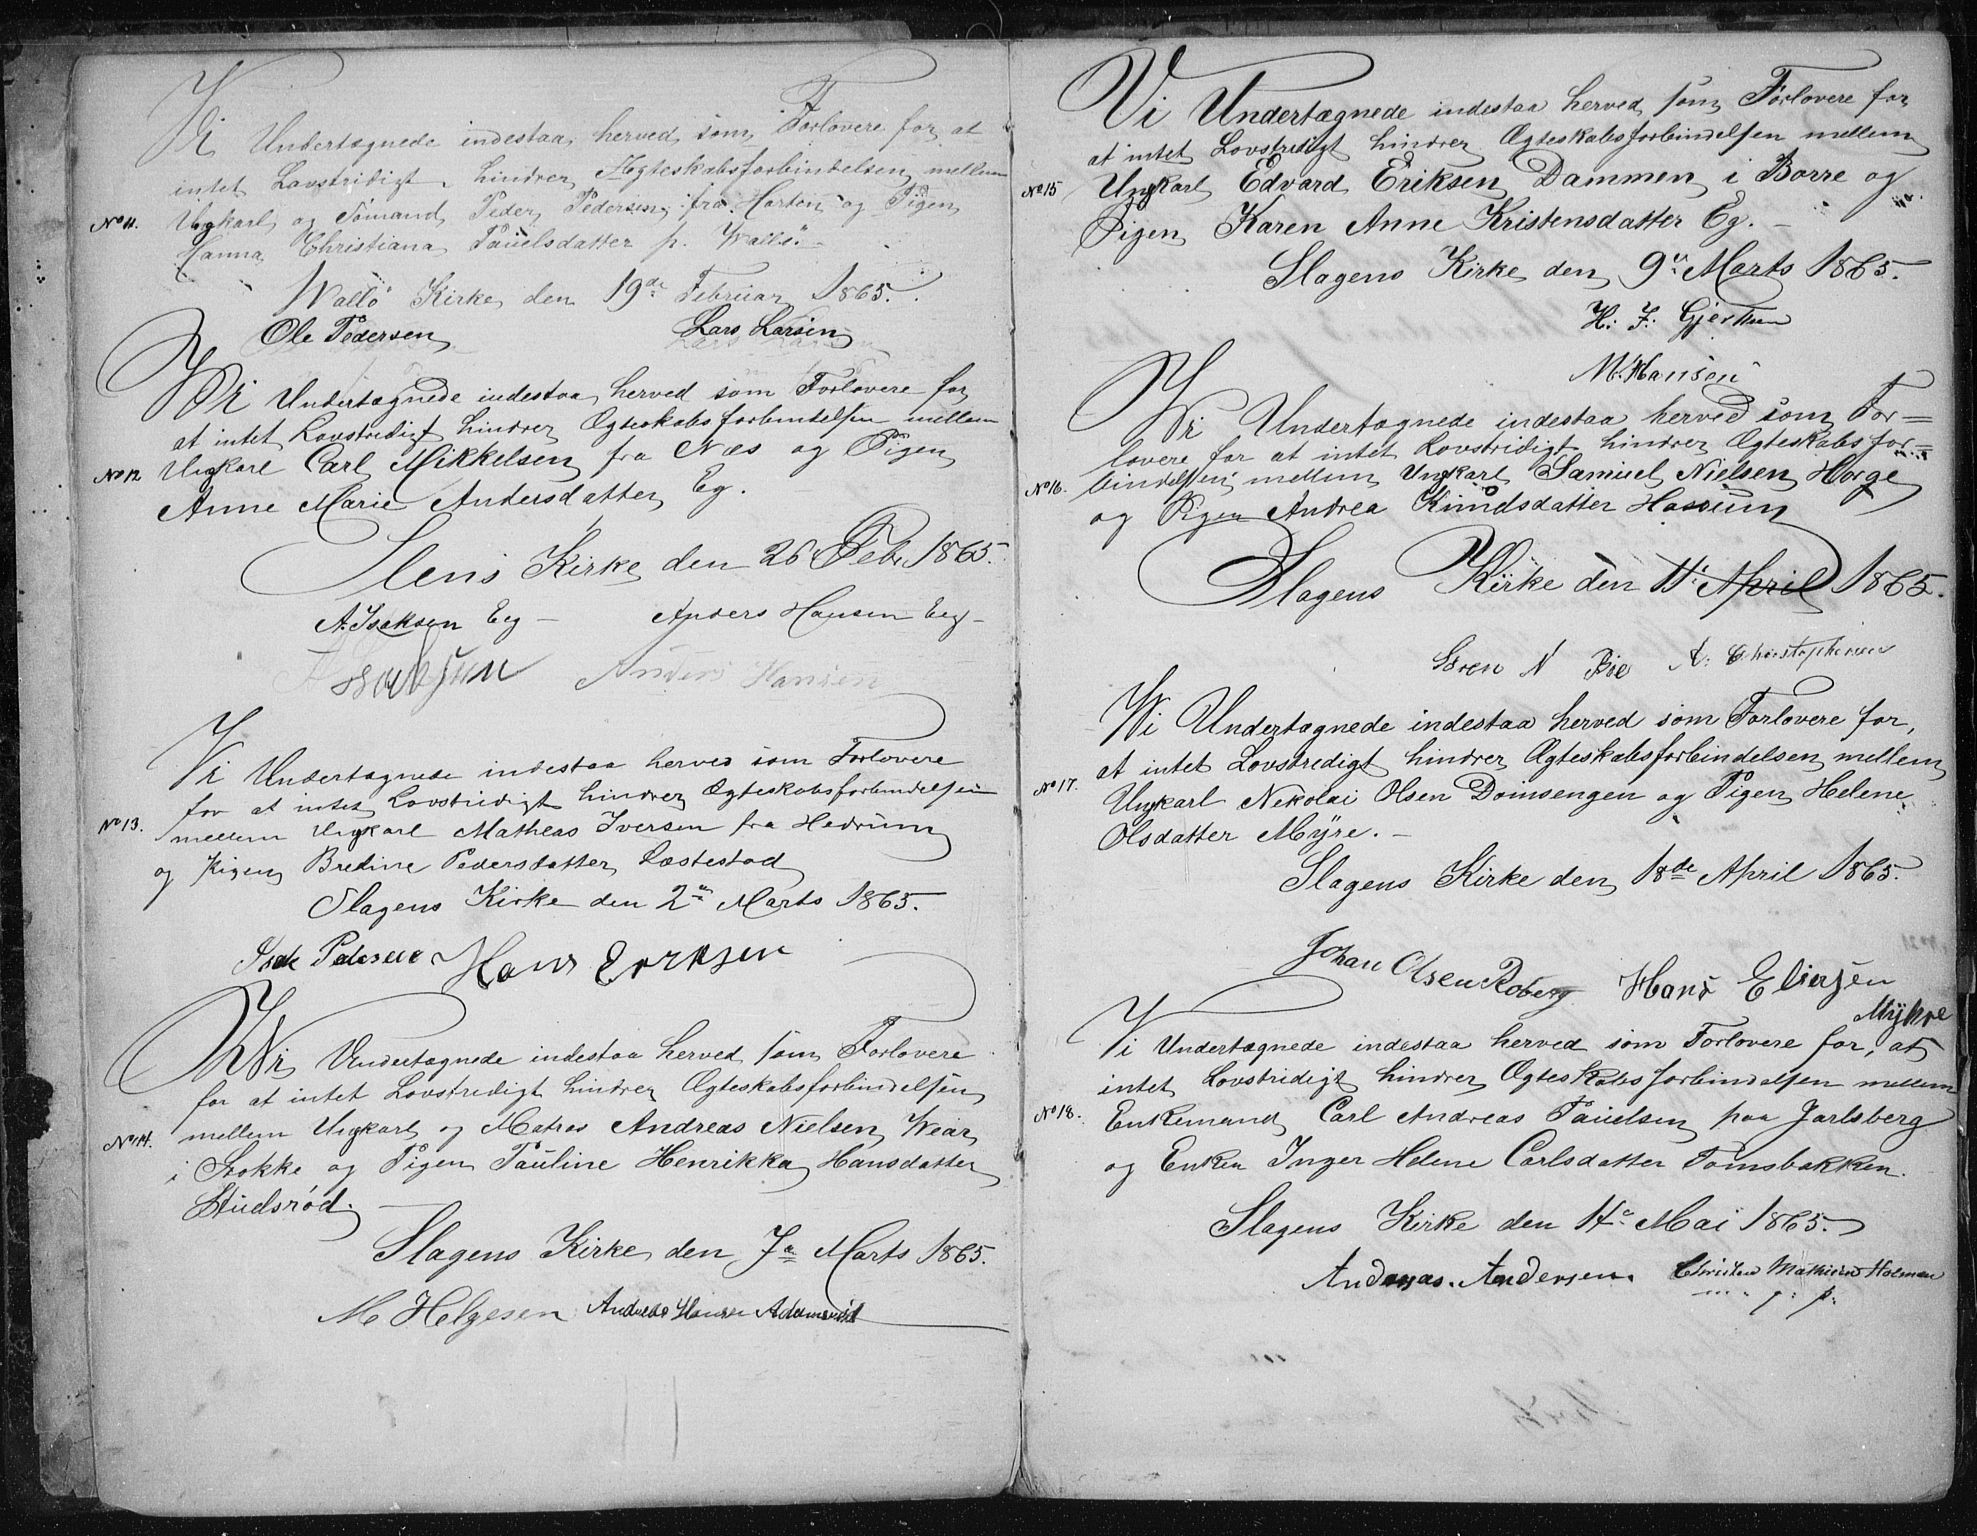 Vi Undertægnede indestaa herved som Forlovere for at
intet Lovstridigt hindrer Ægteskabsforbindelsen mellem
No 11. Ungkarl og Sømand Peder Pedersen fra Horten og Pigen
Hanna Christiana Pauelsdatter p. Wallö.
Wallö Kirke den 19de Februar 1865.
Ole Pedersen Lars Larsen
Vi Undertægnede indestaa herved som Forlovere for
at intet Lovstredigt hindrer Ægteskabsforbindelsen mellem
No 12 Ungkarl Carl Mikkelsen fra Næs og Pigen
Anne Marie Andersdatter Eg.
Slens Kirke den 26 Feb. 1865.
A. Isaksen Eeg Anders Hansen Eeg
Anders Hansen
Vi Undertægnede indestaa herved som Forlovere
for at intet Lovstridigt hindrer Ægteskabsforbindelsen
No 13. mellem Ungkarl Mathias Iversen fra Hedrum
og Pigen Bredine Pedersdatter Bastestad
Slagens Kirke den 2n Marts 1865.
Isak Pedersen Hans Erksen
Vi Undertægnede indestaa herved som Forlovere
for at intet Lovstredigt hindrer Ægteskabsforbindelsen
No 14. mellem Ungkarl og Matros Andreas Nielsen Wear
i Stokke og Pigen Pauline Henrikka Hansdatter
Studsrød.
Slagens Kirke den 7de Marts 1865.
M Helgesen Andreas Hansen Adamsrød
Vi Undertægnede indestaa herved som Forlovere for
at intet Lovstridigt hindrer Ægteskabsforbindelsen mellem
No 15 Ungkarl Edvard Eriksen Dammen i Borre og
Pigen Karen Anne Kristensdatter Eg.
Slagens Kirke den 9n Marts 1865.
H. J. Gjertsen
M. Hanson
Vi Undertægnede indestaa herved som For=
lovere for at intet Lovstridigt hindrer Ægteskabsfor=
No 16. bindelsen mellem Ungkarl Samuel Nielsen Horge
og Pigen Andrea Knudsdatter Hassum
Slagens Kirke den 11' April 1865.
Sören N Bøe A. Christophersen
Vi Undertægnede indestaa herved som Forlovere for,
at intet Lovstredigt hindrer Ægteskabsforbindelsen mellem
No 17. Ungkarl Nekolai Olsen Domsengen og Pigen Helene
Olsdatter Myre.
Slagens Kirke den 18de April 1865.
Johan Olsen Roberg Hans Eliasen
Mykre
Vi Undertægnede indestaa herved som Forlovere for, at
intet Lovstridigt hindrer Ægteskabsforbindelsen mellem
No 18. Enkemand Carl Andreas Pauelsen paa Jarlsberg
og Enken Inger Helene Carlsdatter Tomsbakken.
Slagens Kirke den 14de Mai 1865.
Andreas. Andersen. Christen Mathisen Holmen
m. p. p.